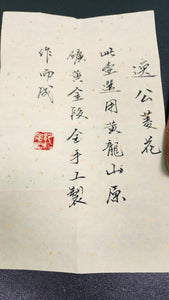 逸公菱花
此壶選用黄龍山原
礦黄金段全手工製
作而成